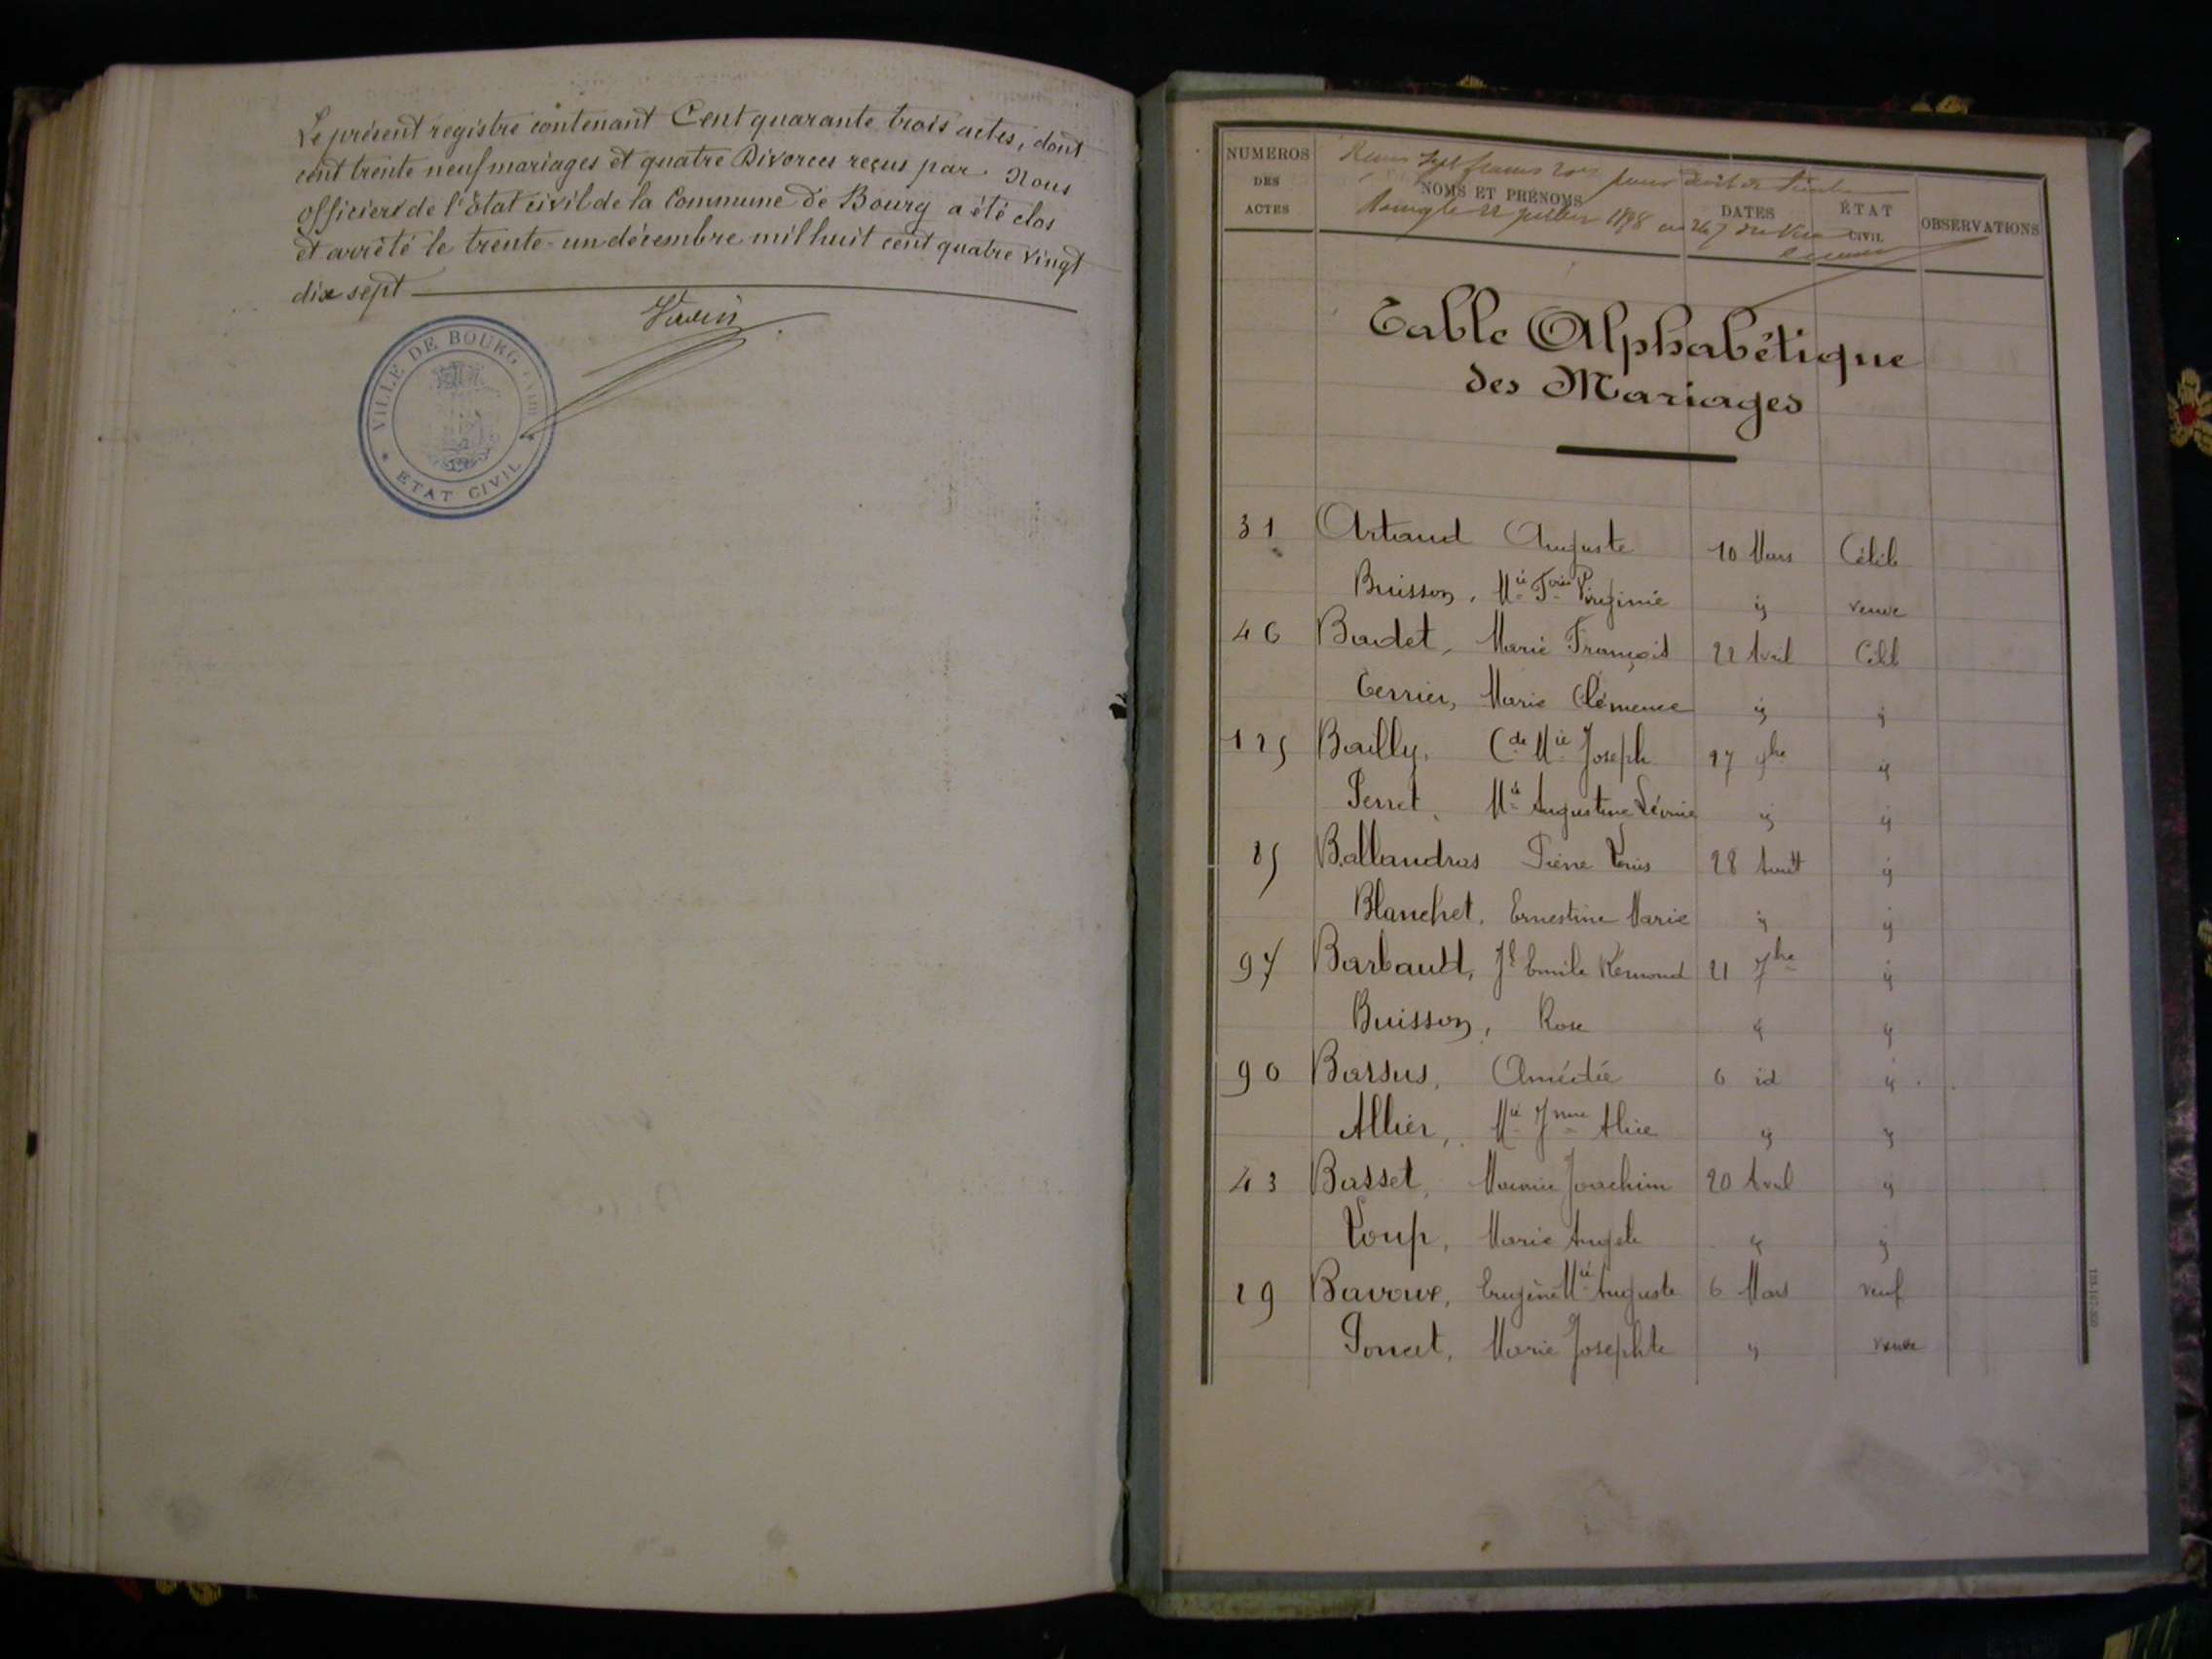 Le présent registre contenant Cent quarante trois actes, dont
cent trente neuf mariages et quatre Divorces reçus par Nous
officiers de l'état civil de la Commune de Bourg a été clos
et arrêté le trente-un décembre mil huit cent quatre vingt
dix sept
VILLE DE BOURG (AIN)
* ETAT CIVIL *
NUMEROS DES ACTES
NOMS ET PRÉNOMS
DATES
ÉTAT CIVIL
OBSERVATIONS
Table Alphabétique
des Mariages
31 Artaud Auguste 10 Mars Célib
Buisson, Mie Virginie id veuve
46 Badet, Marie François 22 Avril Célib
Terrier, Marie Clémence id id
125 Bailly, Cde Mie Joseph 27 9bre id
Perret, Mie Augustine Léonie id id
85 Ballandras Pierre Louis 28 Août id
Blanchet, Ernestine Marie id id
97 Barbault, Jh Emile Rémond 21 7bre id
Buisson, Rose id id
90 Barsus, Amédée 6 id id
Allier, Mie Jnne Alice id id
43 Basset, Joachim 20 Avril id
Loup, Marie Angele id id
29 Bavoux, Eugène Mie Auguste 6 Mars veuf
Poncet, Marie Josephte id veuve